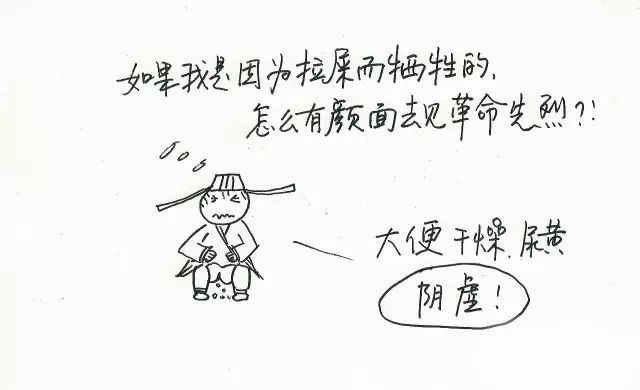 如果我是因为拉屎而牺牲的,
怎么有颜面去见革命先烈?!
大便干燥、尿黄
阴虚!